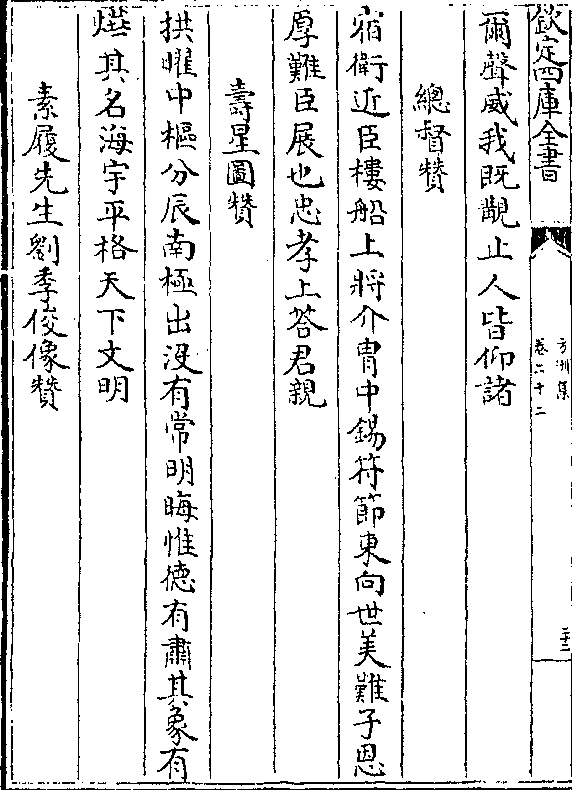 欽定四庫全書
方洲集
卷二十二
爾聲威我既覯止人皆仰諸
總督贊
宿衛近臣樓船上將介冑中錫符節東向世美難子恩
厚難臣展也忠孝上答君親
壽星圖贊
拱曜中樞分辰南極出沒有常明晦惟德有肅其象有
燁其名海宇平格天下文明
素履先生劉季俊像贊